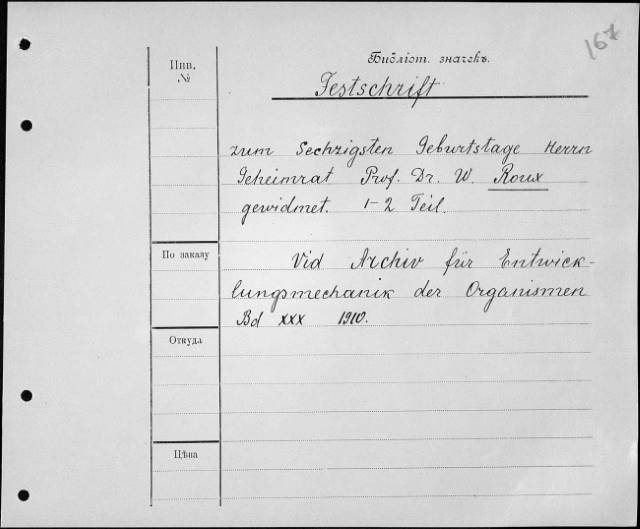 167
Библіот. значекъ.
Инв.
№
Festschrift
zum Sechzigsten Geburtstage Herrn
Geheimrat Prof. Dr. W. Roux
gewidmet. 1-2 Teil.
По заказу
Vid Archiv für Entwick-
lungsmechanik der Organismen
Bd XXX 1910.
Откуда
Цѣна